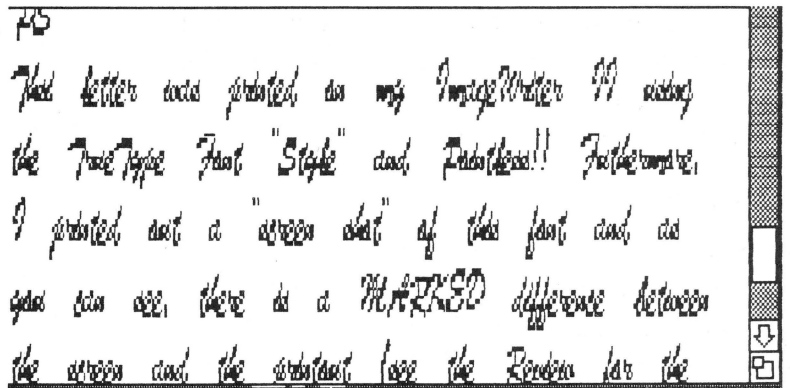 ps
This letter was printed on my ImageWriter II using
the TrueType Font "Style" and Pointless!! Futhermore,
I printed out a "screen shot" of this font and as
you can see, there is a MARKED difference between
the screen and the printout (see the Review for the